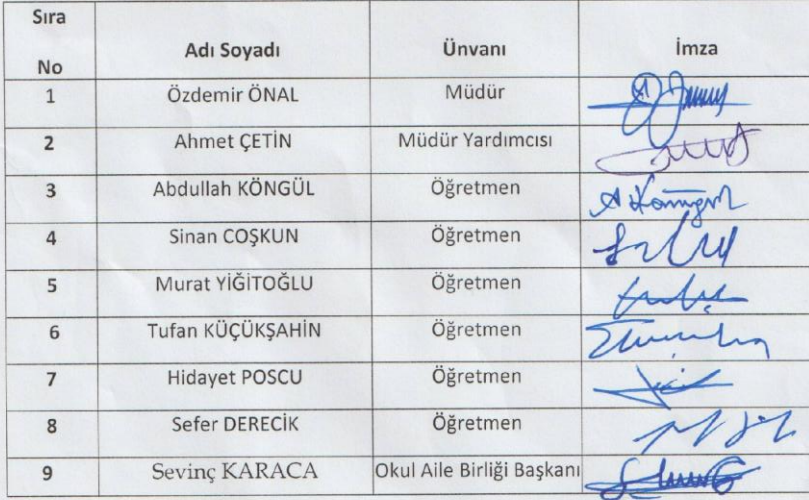 Sıra
No Adı Soyadı Ünvanı İmza
1 Özdemir ÖNAL Müdür
2 Ahmet ÇETİN Müdür Yardımcısı
3 Abdullah KÖNGÜL Öğretmen A Köngül
4 Sinan COŞKUN Öğretmen
5 Murat YİĞİTOĞLU Öğretmen
6 Tufan KÜÇÜKŞAHİN Öğretmen
7 Hidayet POSCU Öğretmen
8 Sefer DERECİK Öğretmen
9 Sevinç KARACA Okul Aile Birliği Başkanı